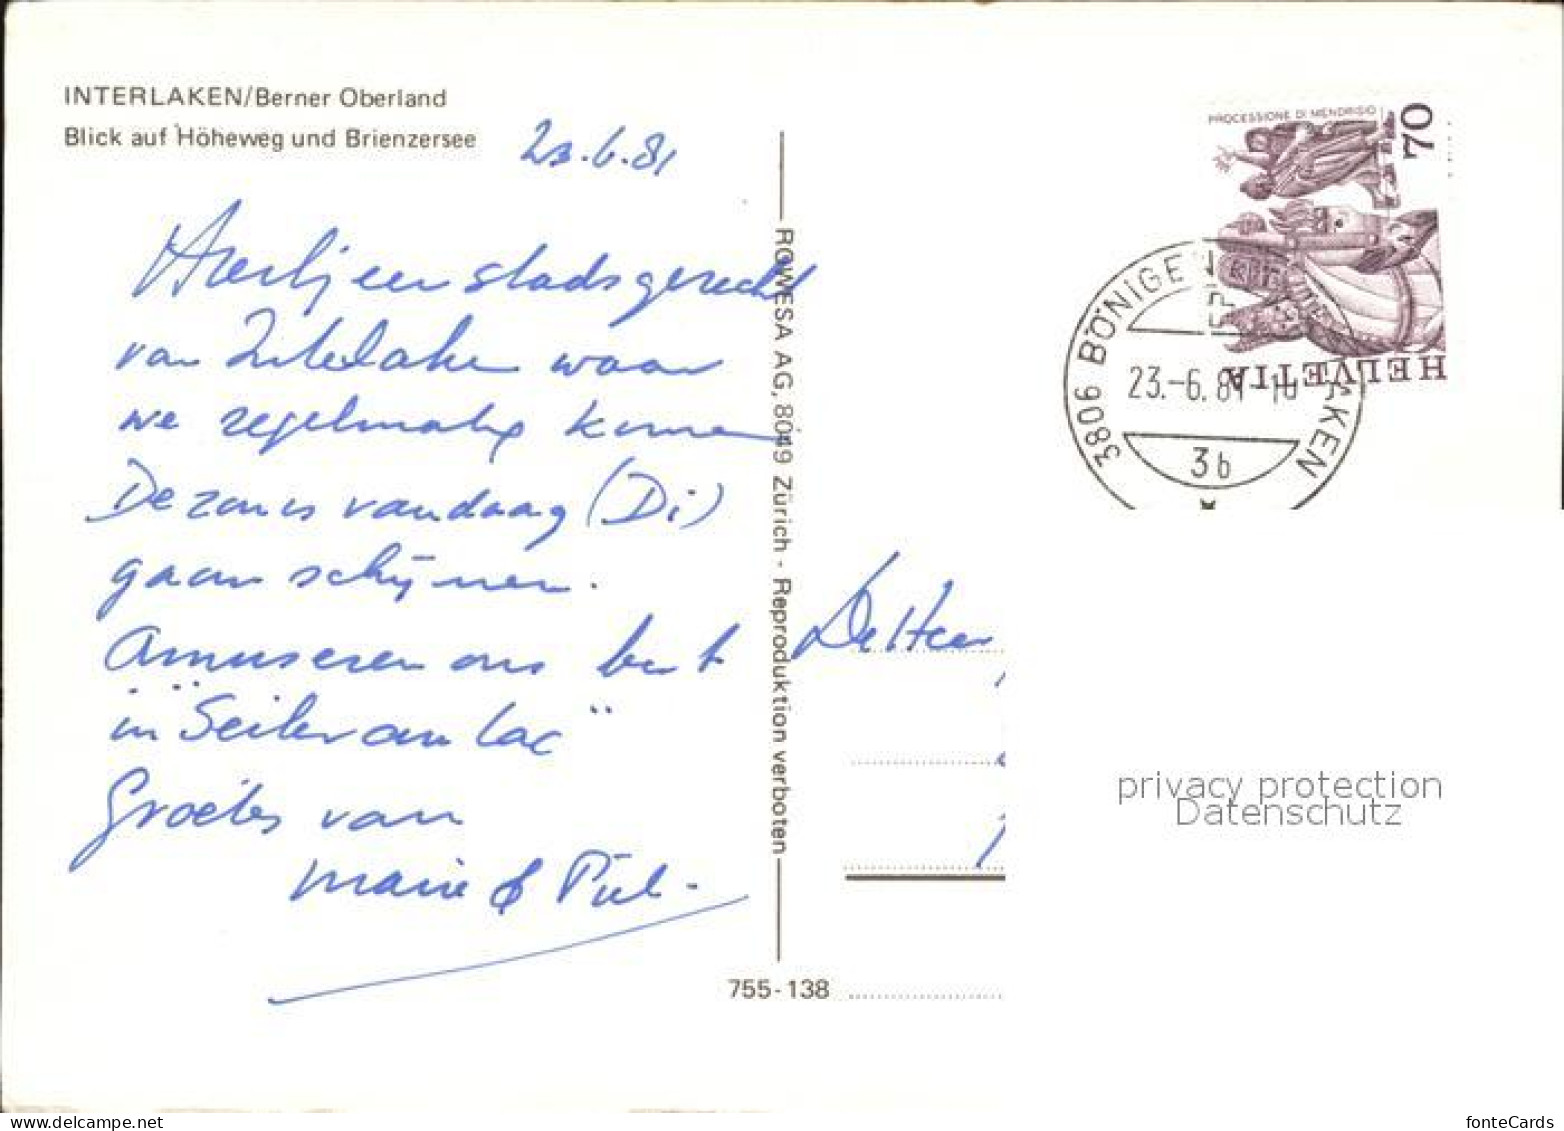 INTERLAKEN/Berner Oberland
Blick auf Höheweg und Brienzersee
23.6.81
Hierbij een stadsgezicht
van Interlaken waar
we regelmatig komen
De zon is vandaag (Di)
gaan schijnen.
Amuseren ons best
in "Seiler au Lac"
Groetes van
Marie & Piet.
ROWESA AG, 8049 Zürich - Reproduktion verboten
755-138
PROCESSIONE DI MENDRISIO
70
HELVETIA
3806 BÖNIGEN
23.-6.81-18
3b
De Heer
privacy protection
Datenschutz
www.delcampe.net
fonteCards